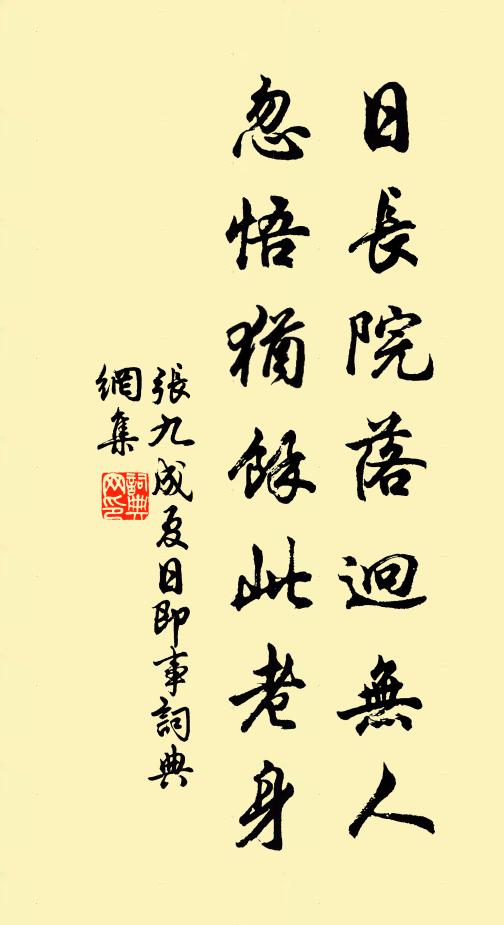 日長院落迥無人
忽悟猶餘此老身
張九成夏日即事詞典
網集
詞典
网印